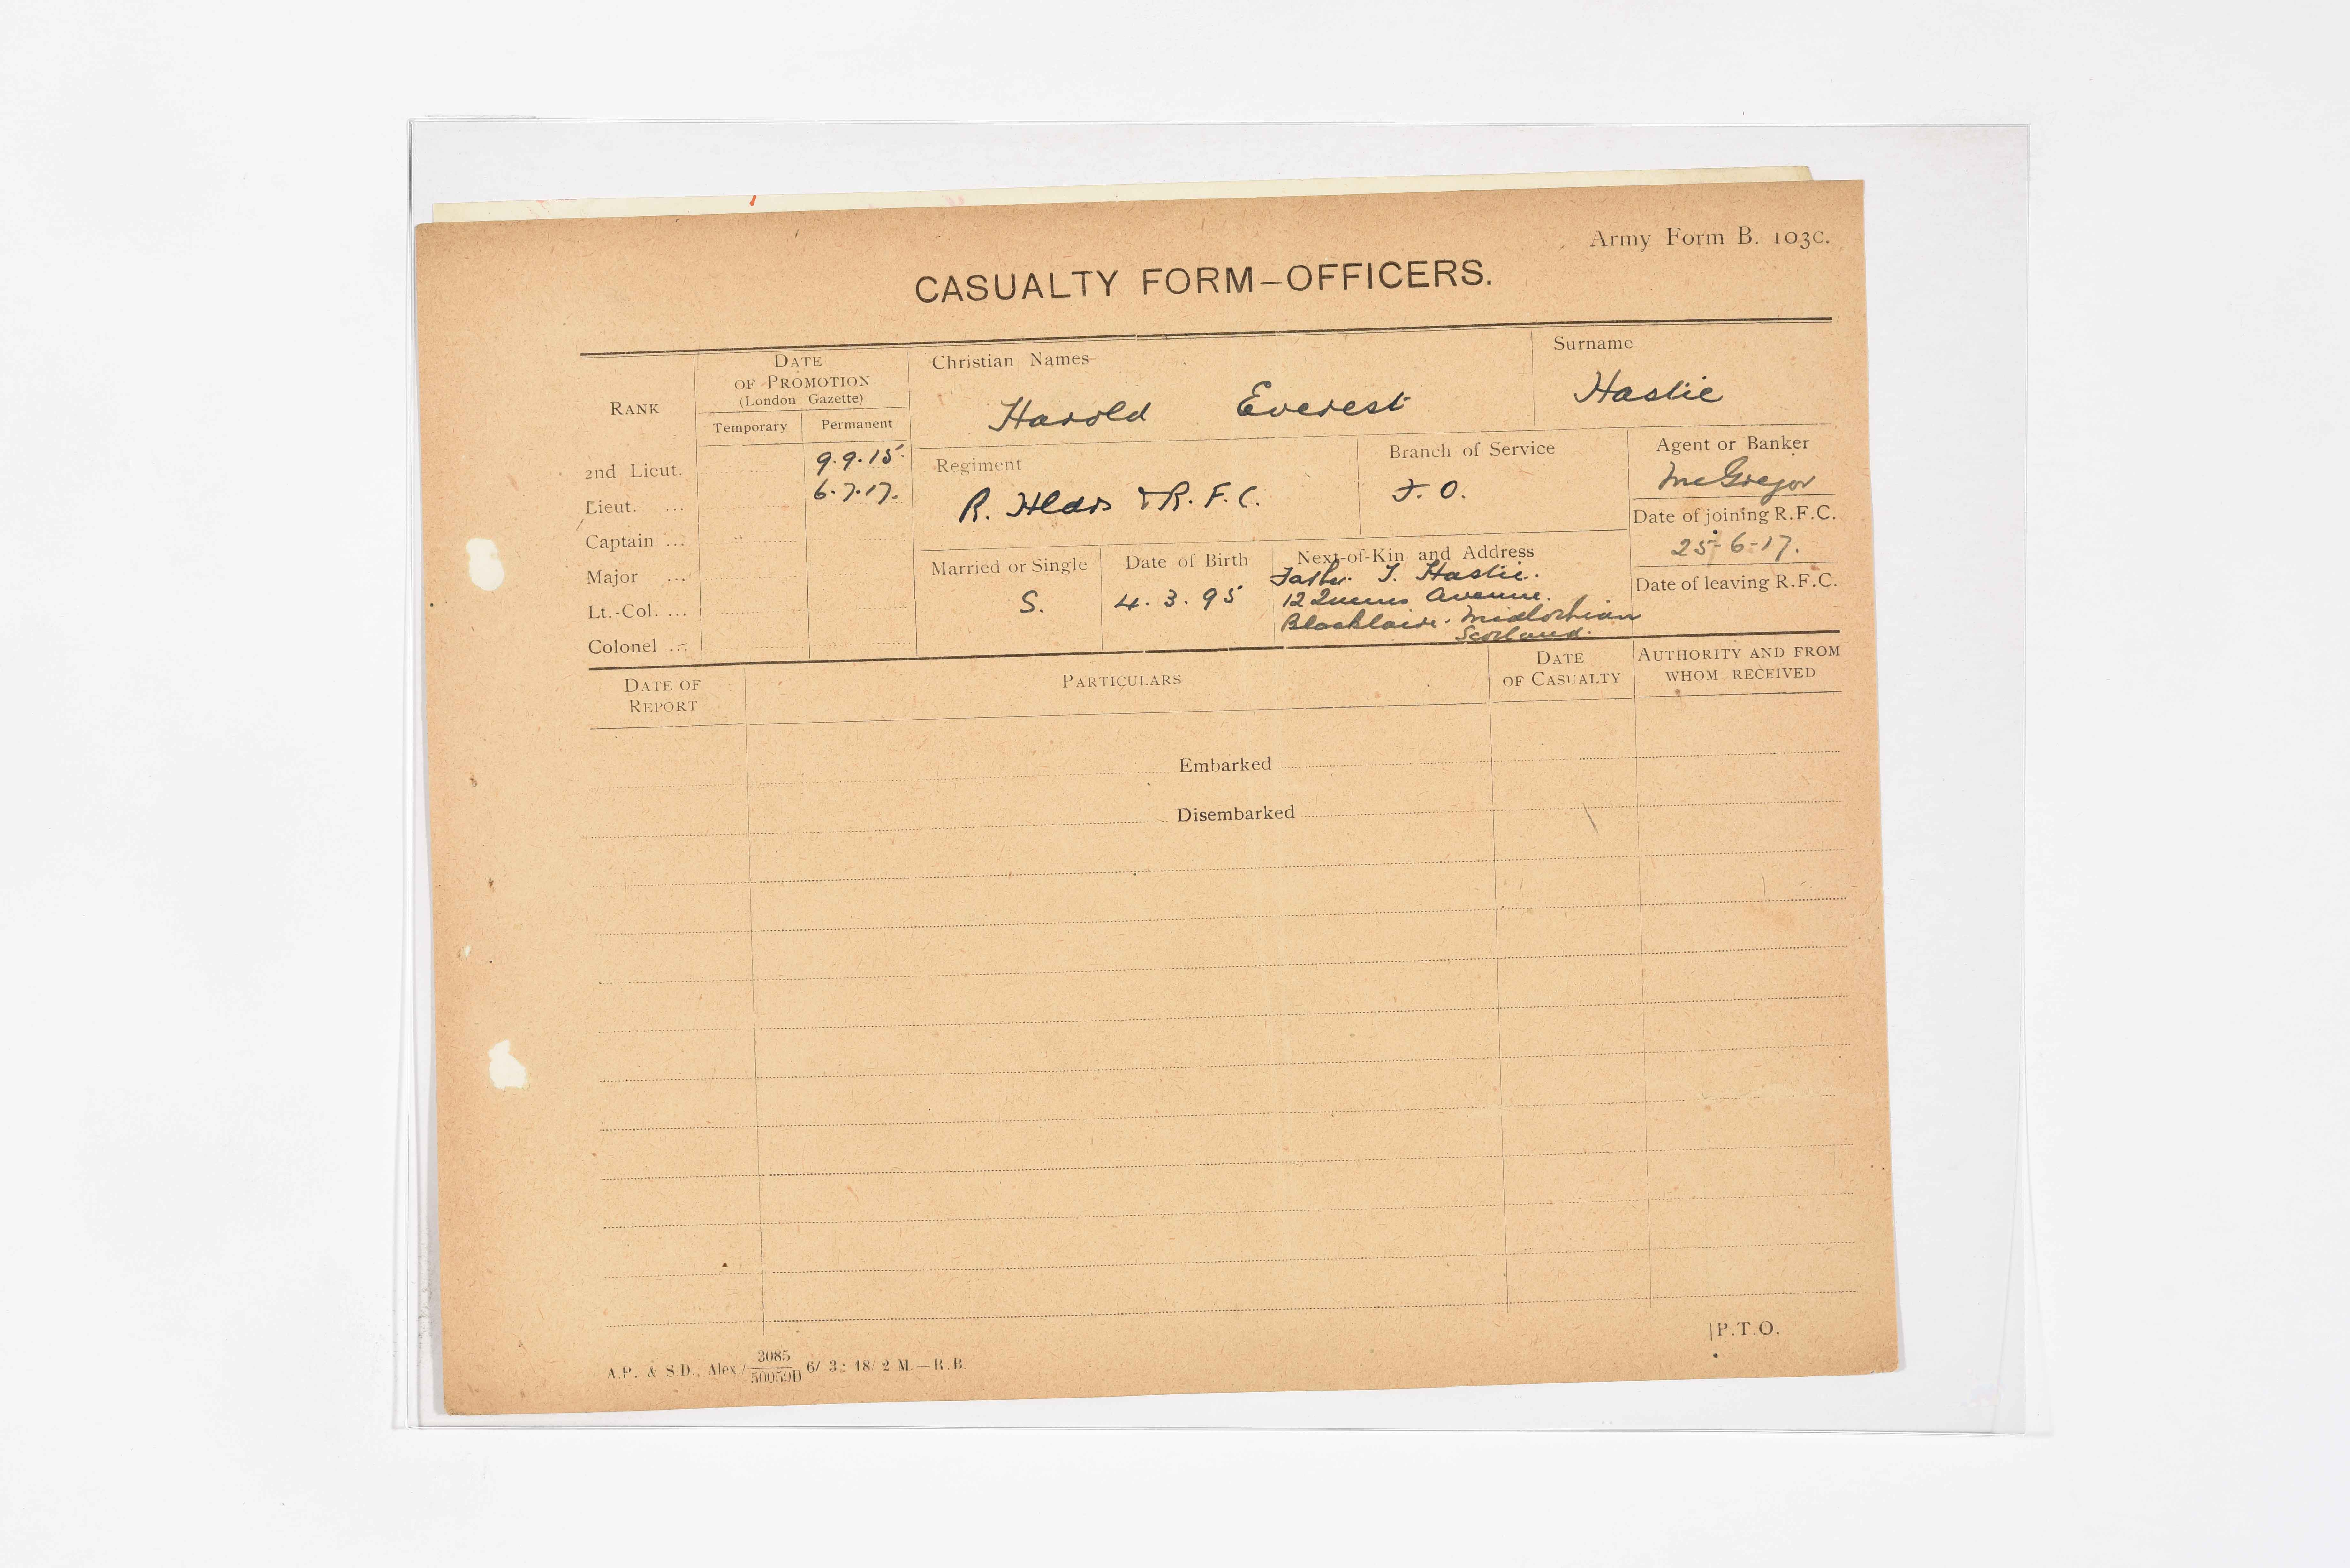 Army Form B. 103C.
CASUALTY FORM—OFFICERS.
RANK
DATE
OF PROMOTION
(London Gazette)
Temporary
Permanent
Christian Names
Harold Everest
Surname
Hastie
2nd Lieut.
9.9.15.
Lieut. ...
6.7.17.
Captain ...
Major ...
Lt.-Col. ...
Colonel ...
Regiment
R. Hldrs & R. F. C.
Branch of Service
F. O.
Agent or Banker
McGregor
Date of joining R.F.C.
25-6-17.
Date of leaving R.F.C.
Married or Single
S.
Date of Birth
4. 3. 95
Next-of-Kin and Address
Father. T. Hastie.
12 Queens Avenue.
Blackhall. Midlothian
Scotland.
DATE OF
REPORT
PARTICULARS
DATE
OF CASUALTY
AUTHORITY AND FROM
WHOM RECEIVED
Embarked
Disembarked
P.T.O.
A.P. & S.D., Alex./3085/50059D 6/3: 18/2 M.—R.B.